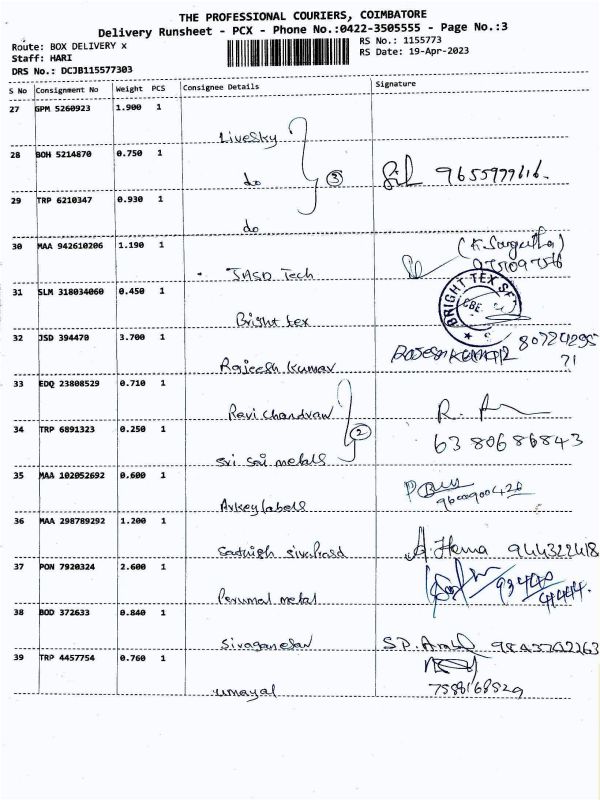 THE PROFESSIONAL COURIERS, COIMBATORE
Delivery Runsheet - PCX - Phone No.:0422-3505555 - Page No.:3
Route: BOX DELIVERY x
RS No.: 1155773
Staff: HARI
RS Date: 19-Apr-2023
DRS No.: DCJB115577303
S No Consignment No Weight PCS Consignee Details Signature
27 GPM 5260923 1.900 1
LiveSky
28 BOH 5214870 0.750 1
do 3 9655977616
29 TRP 6210347 0.930 1
do
30 MAA 942610206 1.190 1
JASD Tech
31 SLM 318034060 0.450 1
BRIGHT TEX
CBE
Bright tex
32 JSD 394470 3.700 1
Rajeesh Kumar
80724295
71
33 EDQ 23808529 0.710 1
Ravi Chandran R.
34 TRP 6891323 0.250 1
2
sri sai metals 6380686843
35 MAA 102052692 0.600 1
Arkeylabels
36 MAA 298789292 1.200 1
A. Hema 944322418
37 PON 7920324 2.600 1
Perumal metal
38 BOD 372633 0.840 1
Sivaganesan S.P.
39 TRP 4457754 0.760 1
umayal 7588168529